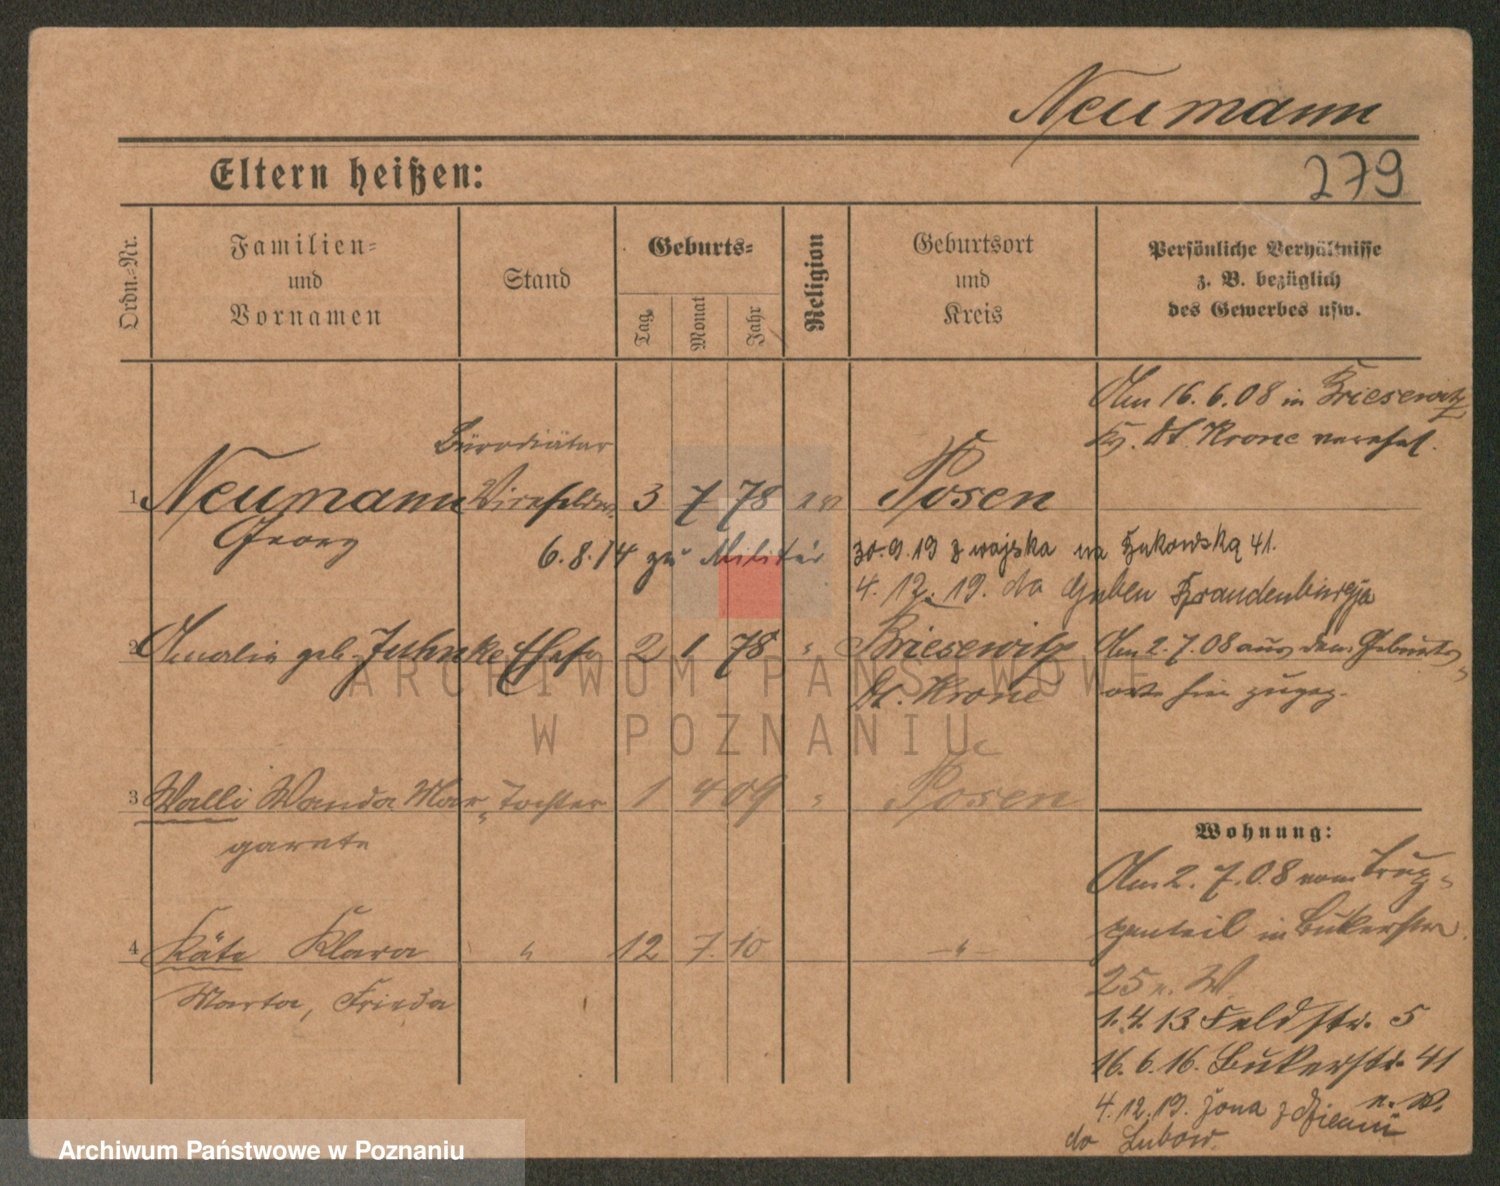 Neumann
Eltern heißen:
279
Ordn.-Nr.
Familien-
und
Vornamen
Stand
Geburts-
Tag
Monat
Jahr
Religion
Geburtsort
und
Kreis
Persönliche Verhältnisse
z. B. bezüglich
des Gewerbes usw.
Am 16.6.08 in Briesewitz
Kr. Dt. Krone verehel.
Bürodiätar
1 Neumann 3 7 78 ev Posen
Georg
6.8.14 zu Militär 30.9.19 z wojska na Bukowską 41.
4.12.19. do Guben Brandenburgja
2 Amalie geb. Juhnke Ehefr 2 1 78 " Briesewitz Am 2.7.08 aus dem Geburts-
Dt. Krone ort hier zugez.
3 Walli Wanda Mar- Tochter 1 4 09 " Posen
garete
Wohnung:
Am 2.7.08 vom
in Bukerstr.
4 Käte Klara " 12 7. 10 "
Marta, Frieda
25 n. W.
1.4.13 Feldstr. 5
16.6.16. Bukerstr. 41
n. W.
4.12.19. żona z dziećmi
do Lubow.
ARCHIWUM PAŃSTWOWE
W POZNANIU
Archiwum Państwowe w Poznaniu